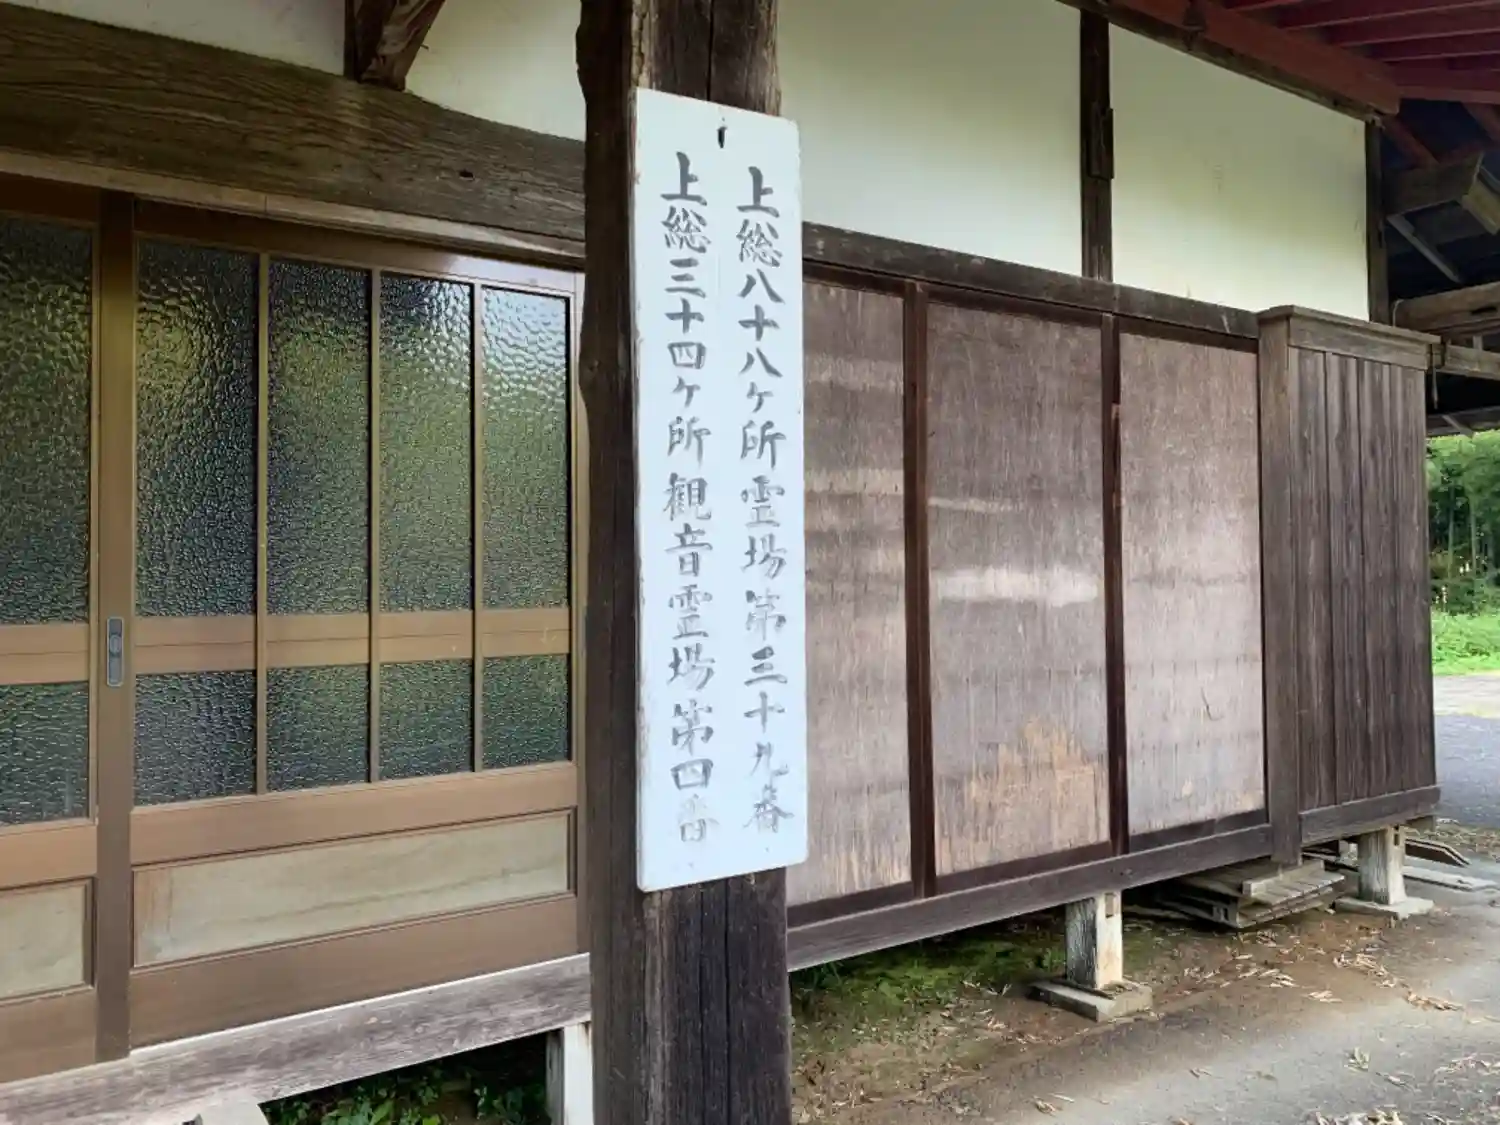 上総八十八ヶ所霊場第三十九番
上総三十四ヶ所観音霊場第四番